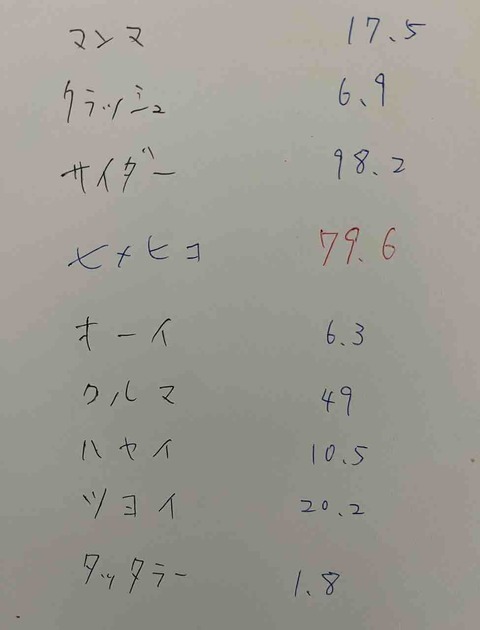 マンマ 17.5
クラッシュ 6.9
サイダー 98.2
ヒメヒコ 79.6
オーイ 6.3
クルマ 49
ハヤイ 10.5
ツヨイ 20.2
タッタラー 1.8